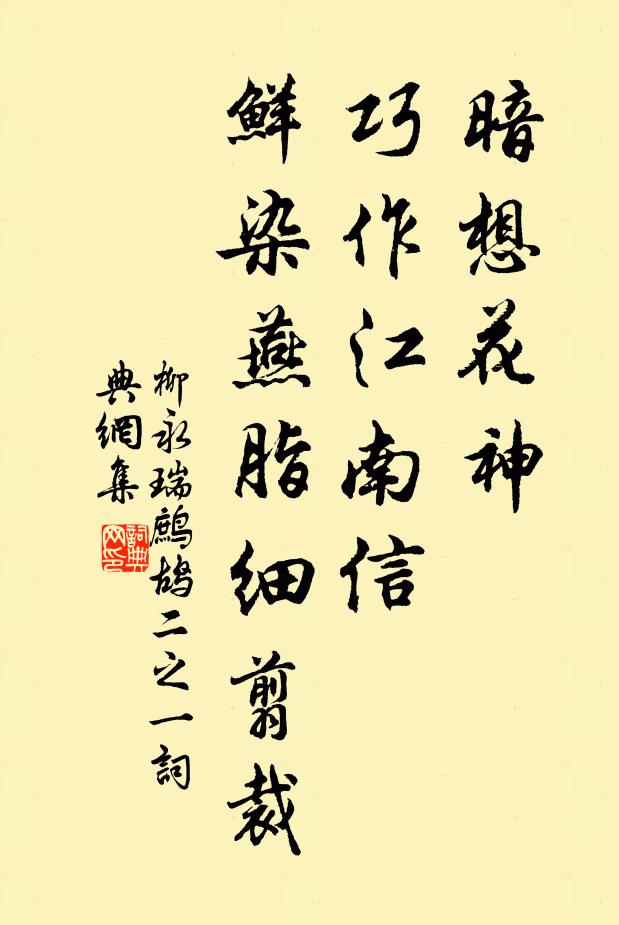 暗想花神
巧作江南信
鮮染燕脂細翦裁
柳永瑞鷓鴣二之一詞
典網集
詞典
网印